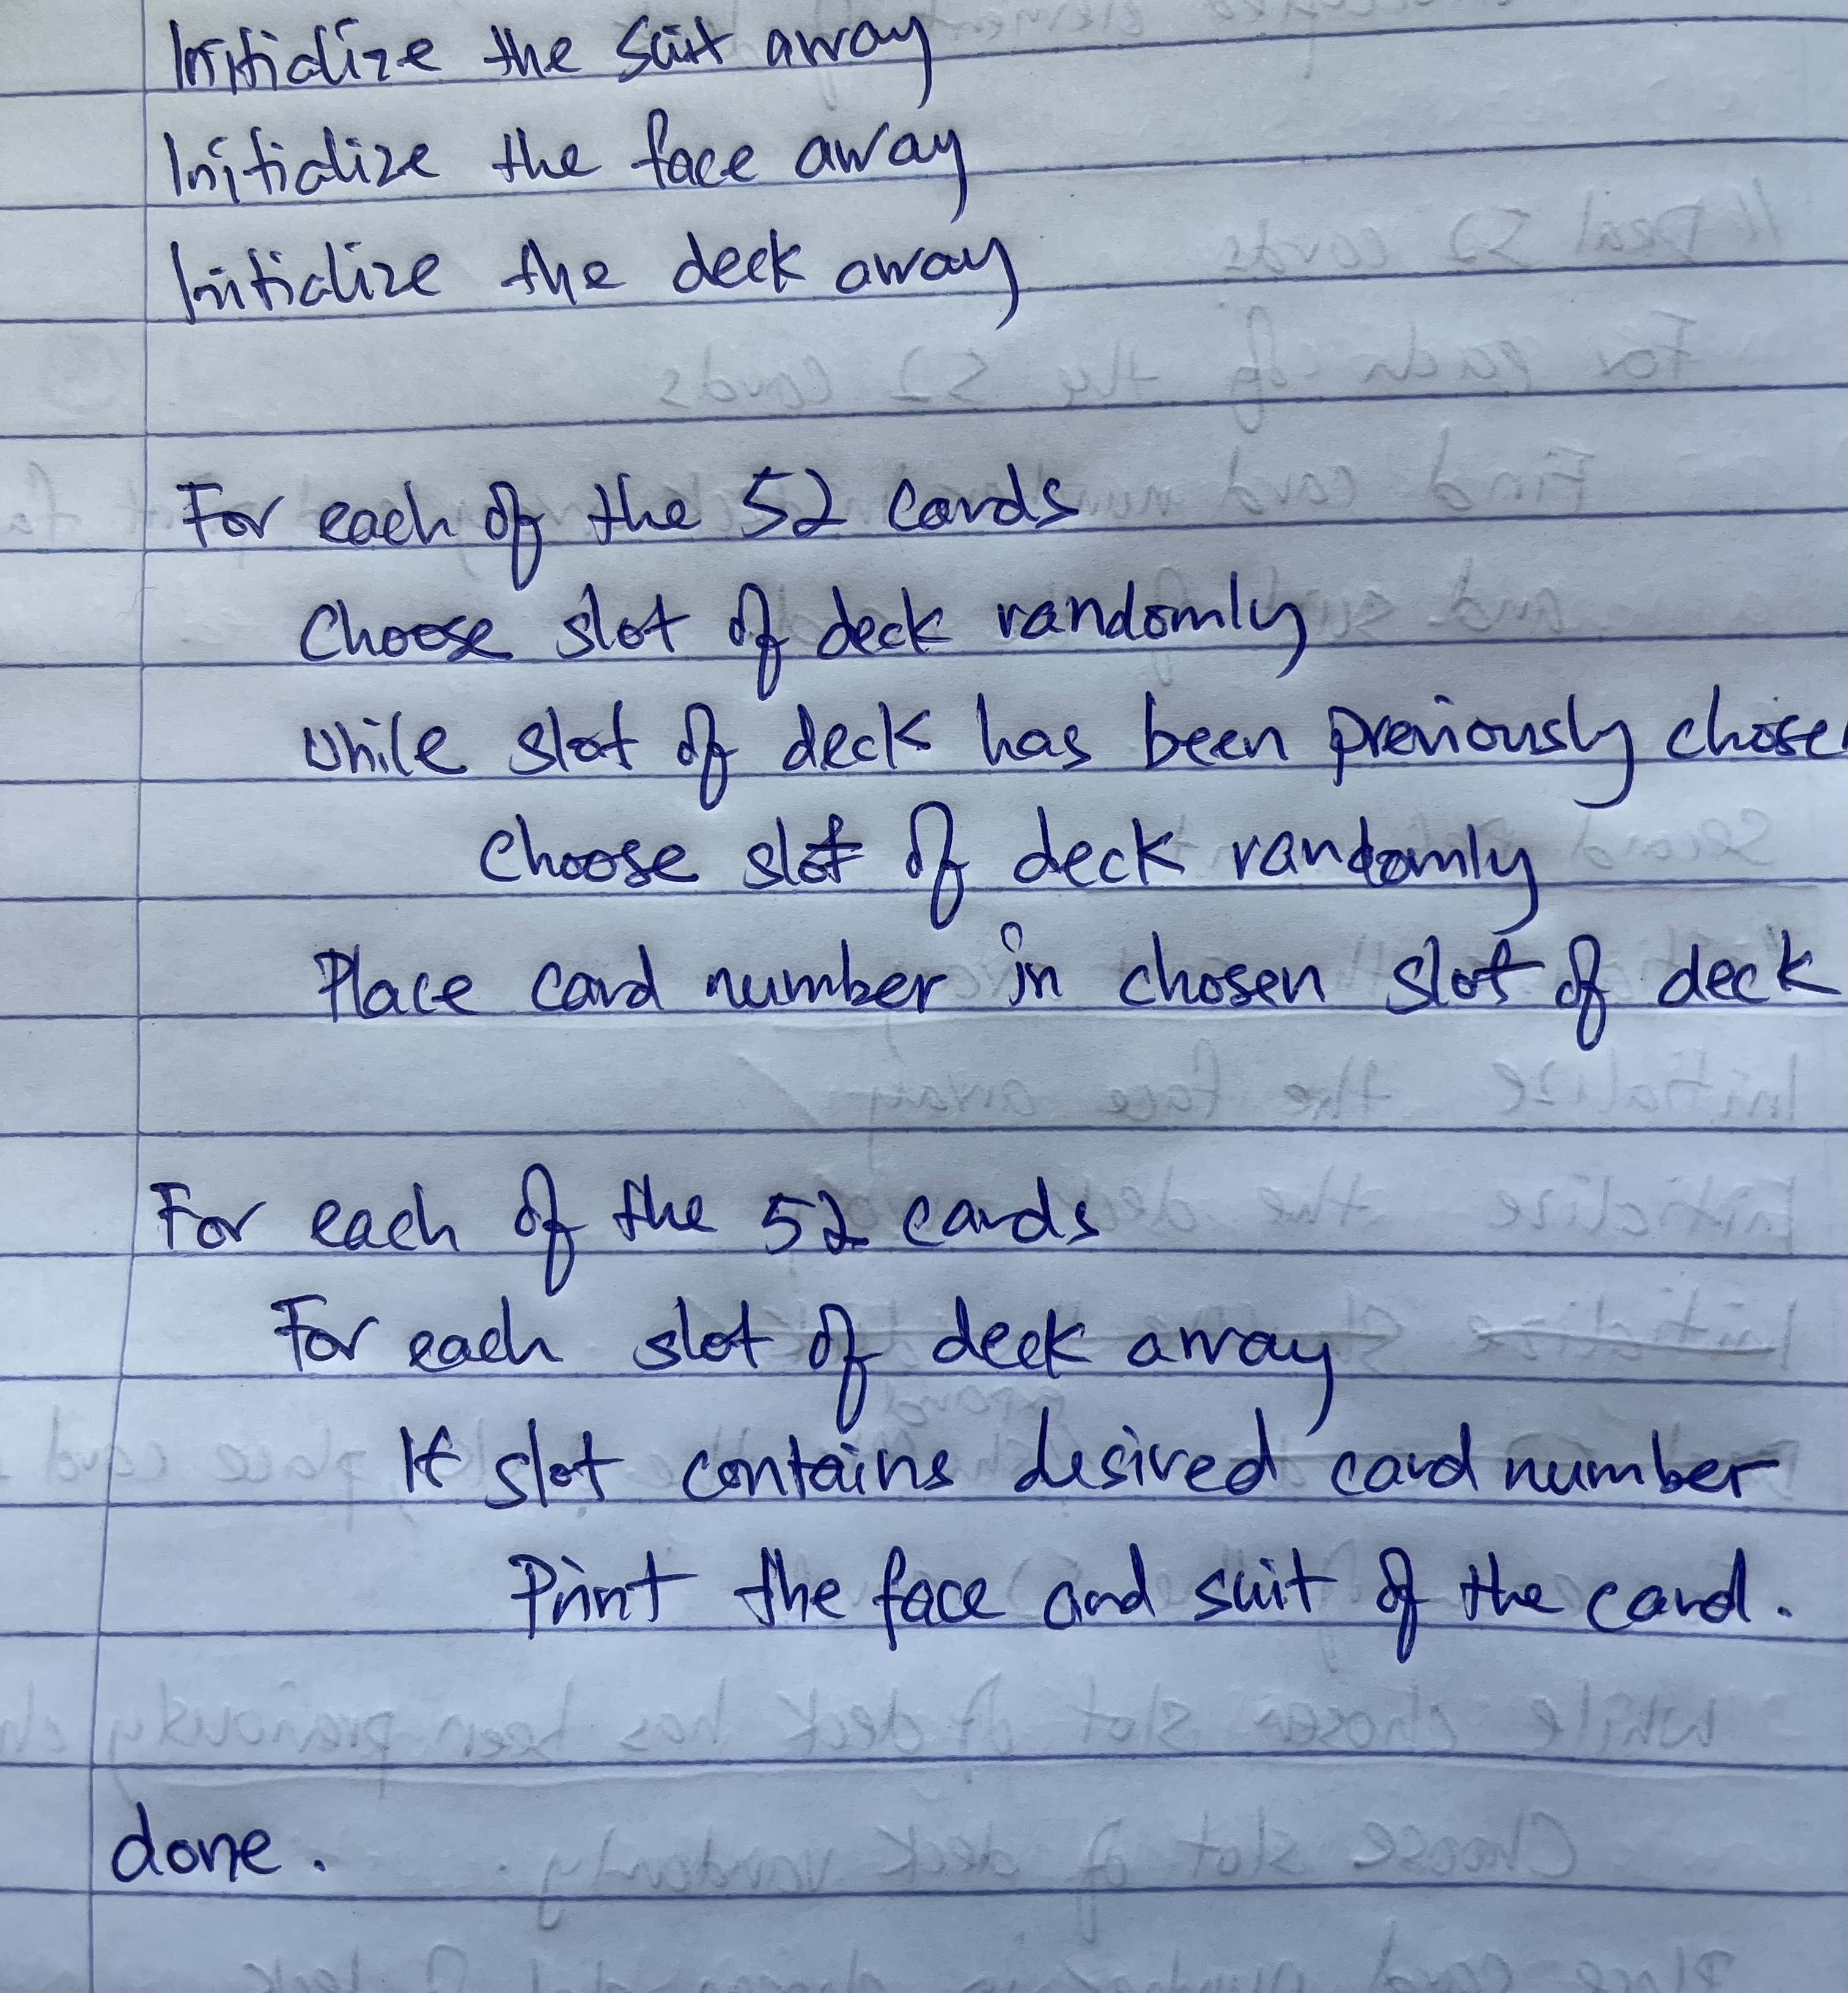 Initialize the suit array
Initialize the face array
Initialize the deck array
For each of the 52 cards
Choose slot of deck randomly
While slot of deck has been previously chosen
Choose slot of deck randomly
Place card number in chosen slot of deck
For each of the 52 cards
For each slot of deck array
If slot contains desired card number
Print the face and suit of the card.
done.